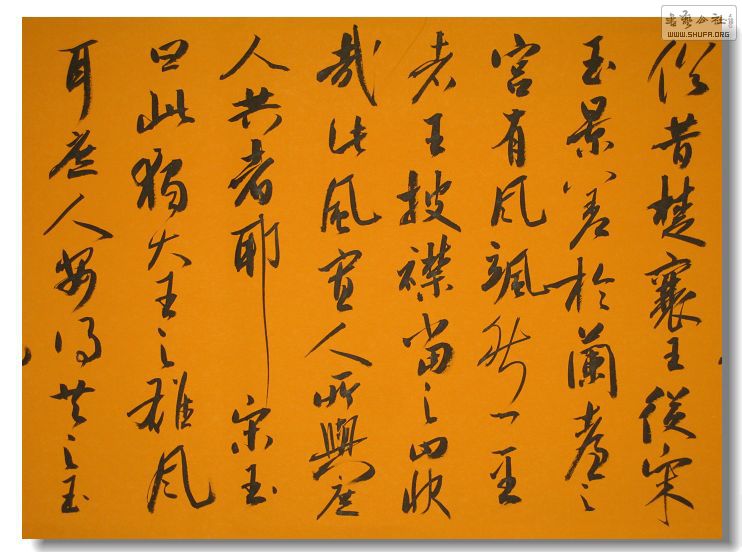 俗昔楚襄王從宋
玉景差於蘭臺之
宮有风颯然一至
者王披襟當之曰快
哉此風寡人所與庶
人共者耶 宋玉
曰此獨大王之雄风
耳庶人安得共之玉
书艺公社
WWW.SHUFA.ORG